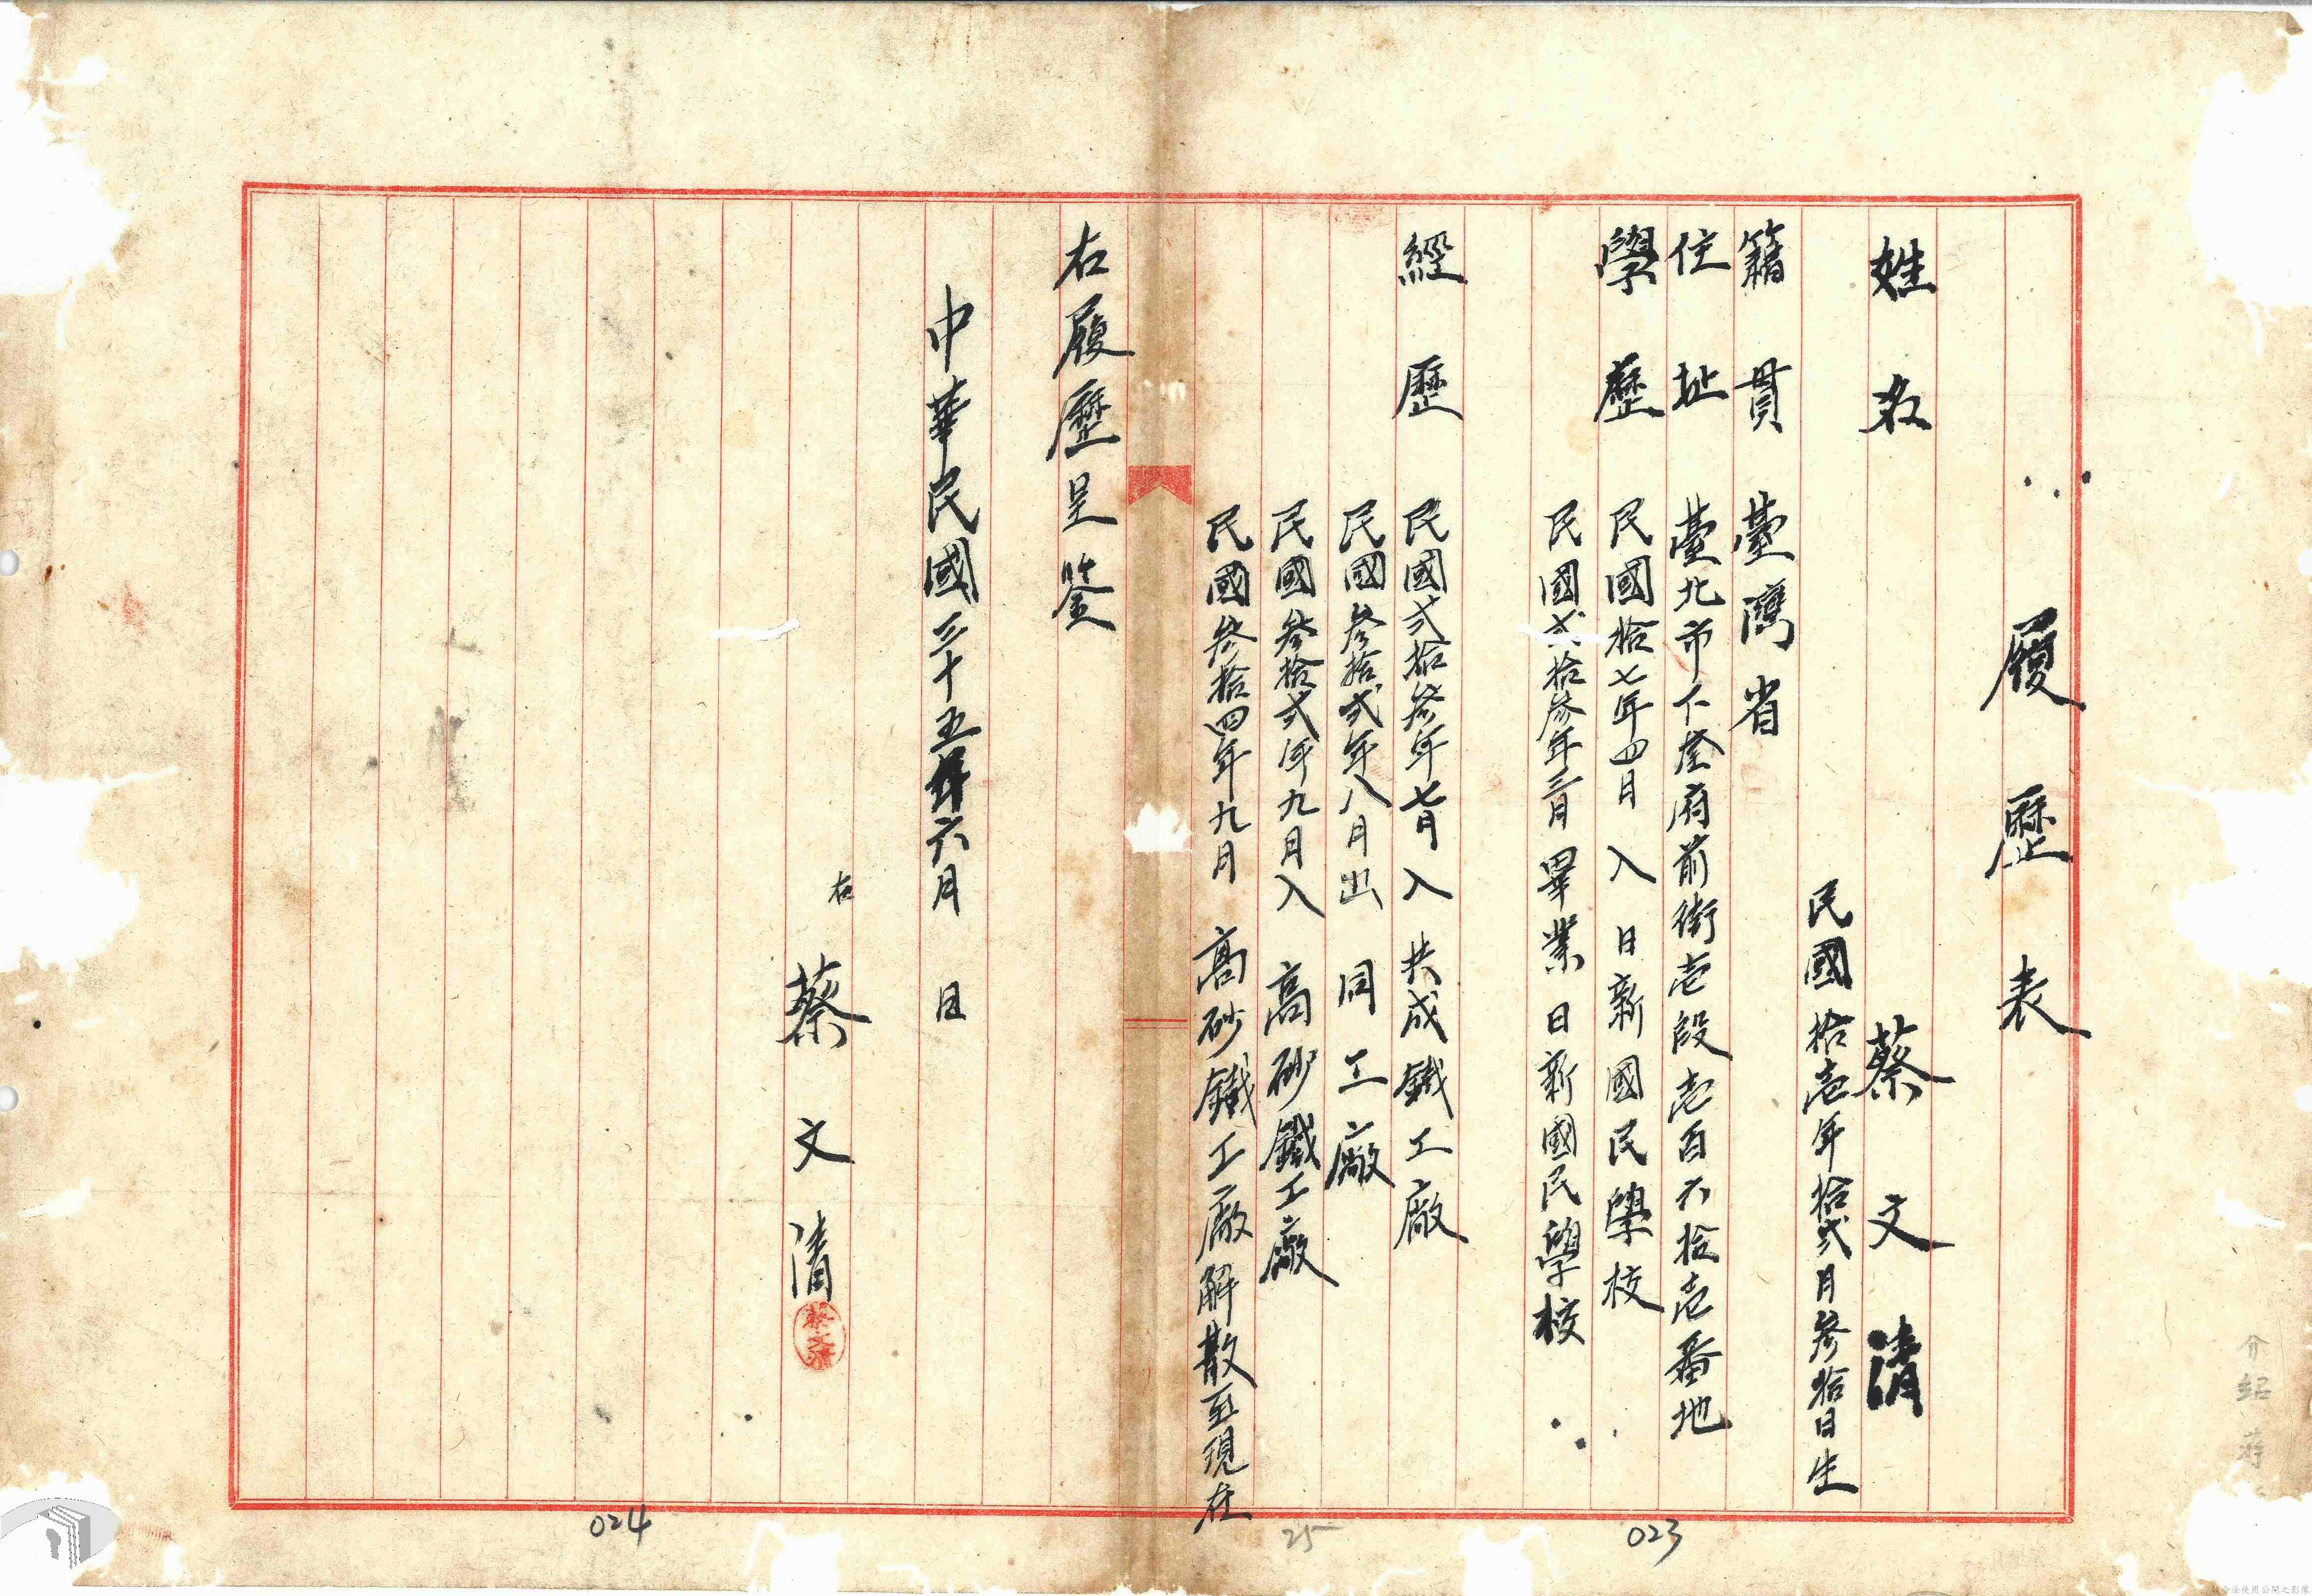 履歷表
姓名 蔡文清
民國拾壱年拾弍月參拾日生
籍貫 臺灣省
住址 臺北市下奎府前街壱段壱百六拾壱番地
學歷 民國拾七年四月入日新國民學校
民國弍拾參年三月畢業日新國民學校
經歷 民國弍拾參年七月入共成鐵工廠
民國參拾弍年八月出同工廠
民國參拾弍年九月入高砂鐵工廠
民國參拾四年九月高砂鐵工廠解散至現在
右履歷呈鑒
中華民國三十五年六月 日
右
蔡文清
蔡文清
介紹 蔣
023
25
024